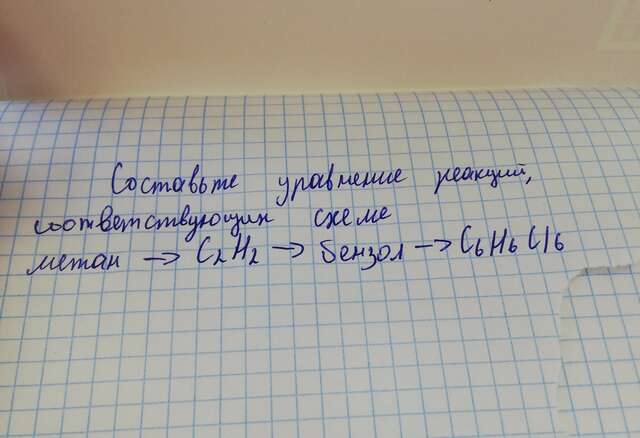 Составьте уравнение реакций,
соответствующих схеме
метан → C₂H₂ → бензол → C₆H₆Cl₆